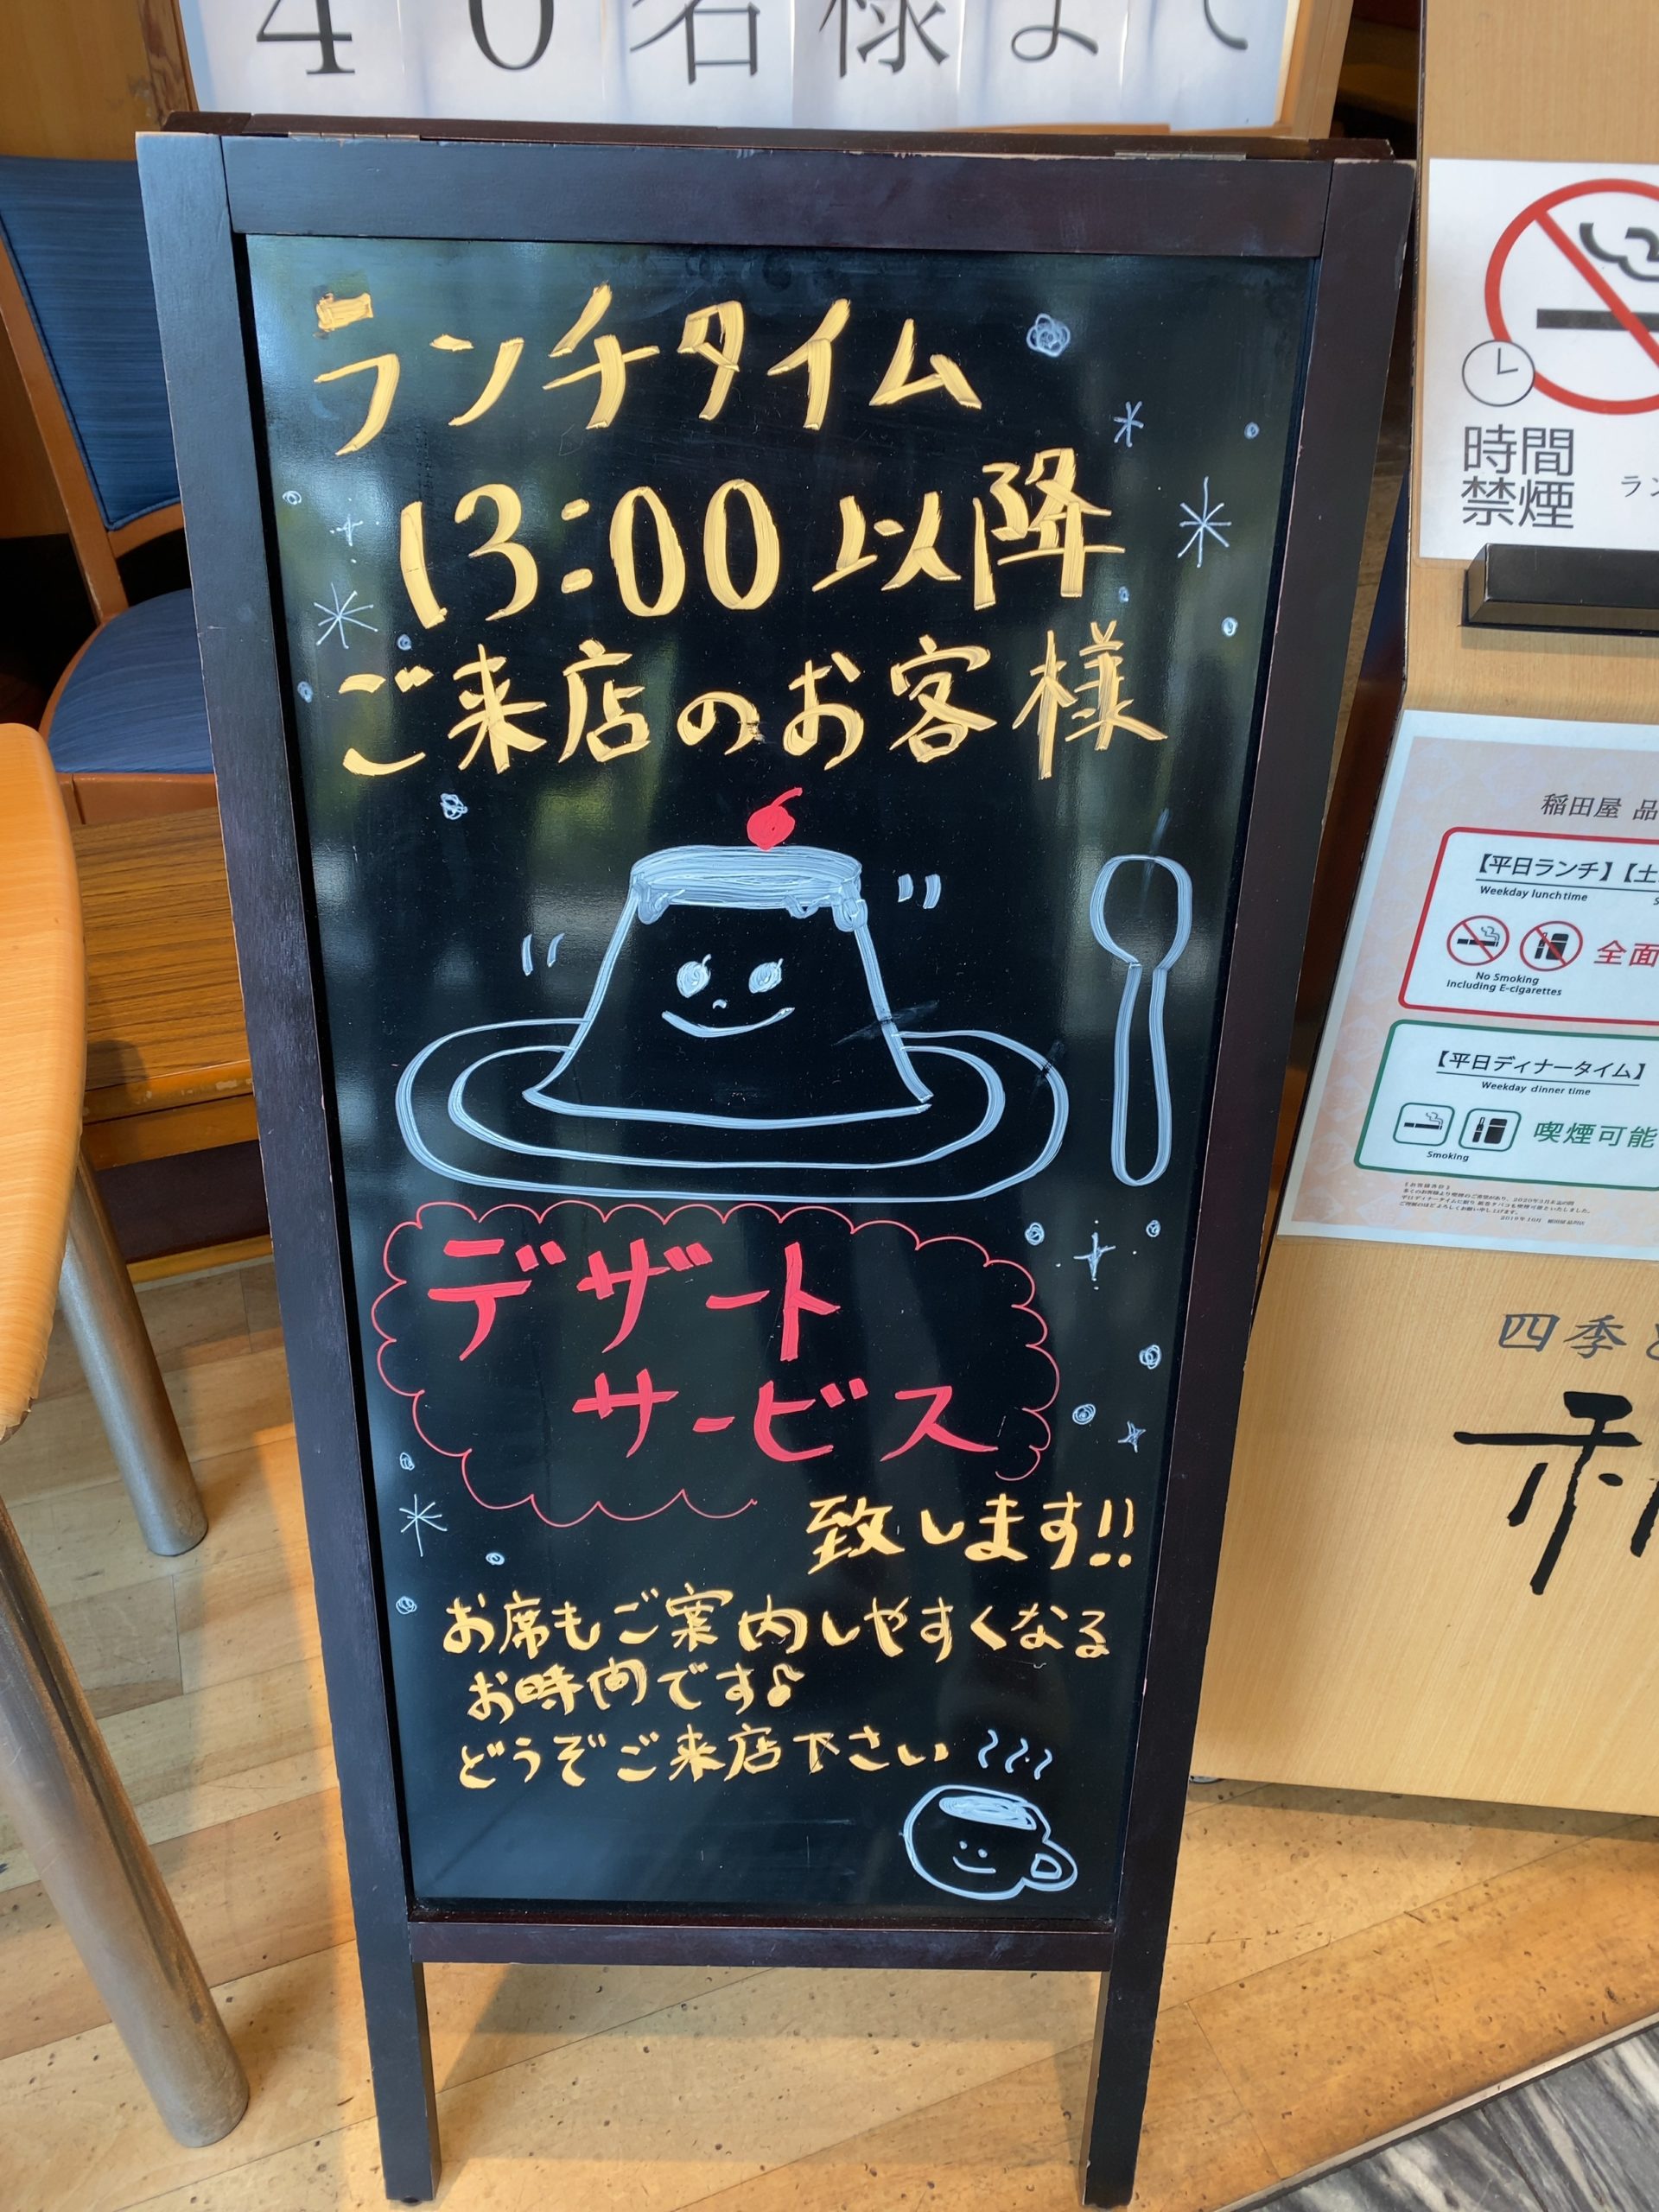 40名様まで
ランチタイム
13:00以降
ご来店のお客様
デザート
サービス
致します!!
お席もご案内しやすくなる
お時間です♪
どうぞご来店下さい
時間
禁煙
ラン
稲田屋 品
【平日ランチ】【土
Weekday lunchtime
全面
No Smoking
Including E-cigarettes
【平日ディナータイム】
Weekday dinner time
喫煙可能
Smoking
四季と